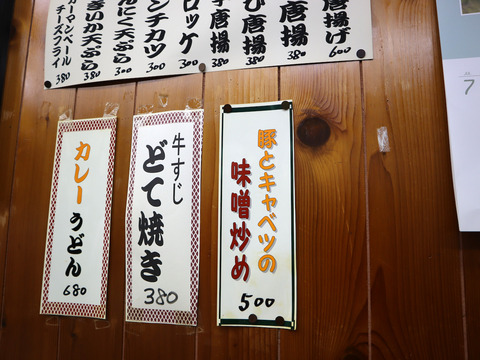 唐揚げ
600
唐揚
380
び唐揚
380
唐揚
380
ロッケ
300
ンチカツ
300
んにく天ぷら
300
きいか天ぷら
380
カマンベール
チーズフライ
380
豚とキャベツの
味噌炒め
500
牛すじ
どて焼き
380
カレーうどん
680
7